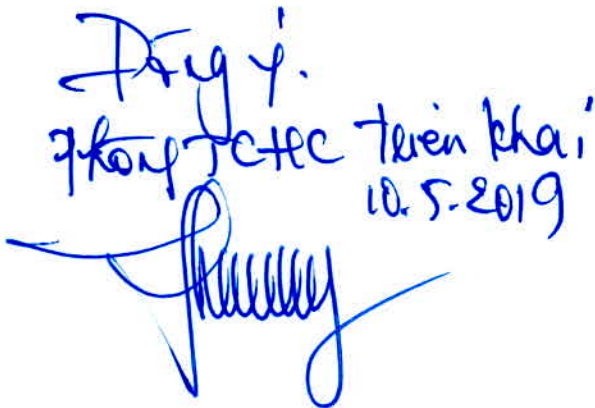 Đồng ý.
Phòng TCHC triển khai
10.5.2019